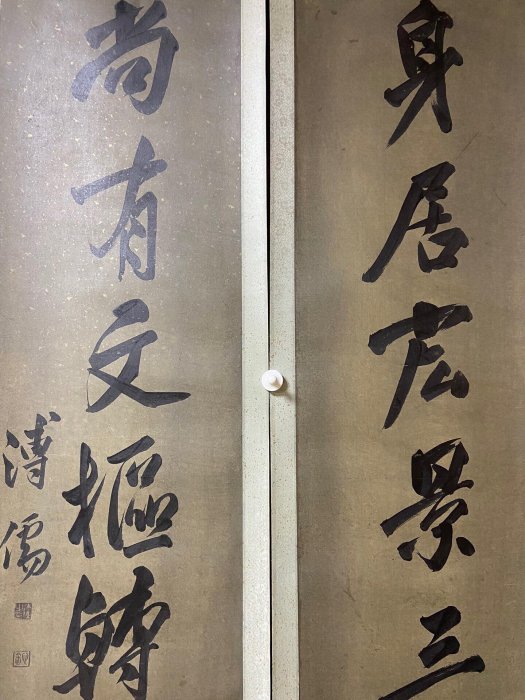 身居宏景三
尚有文樞轉
溥儒